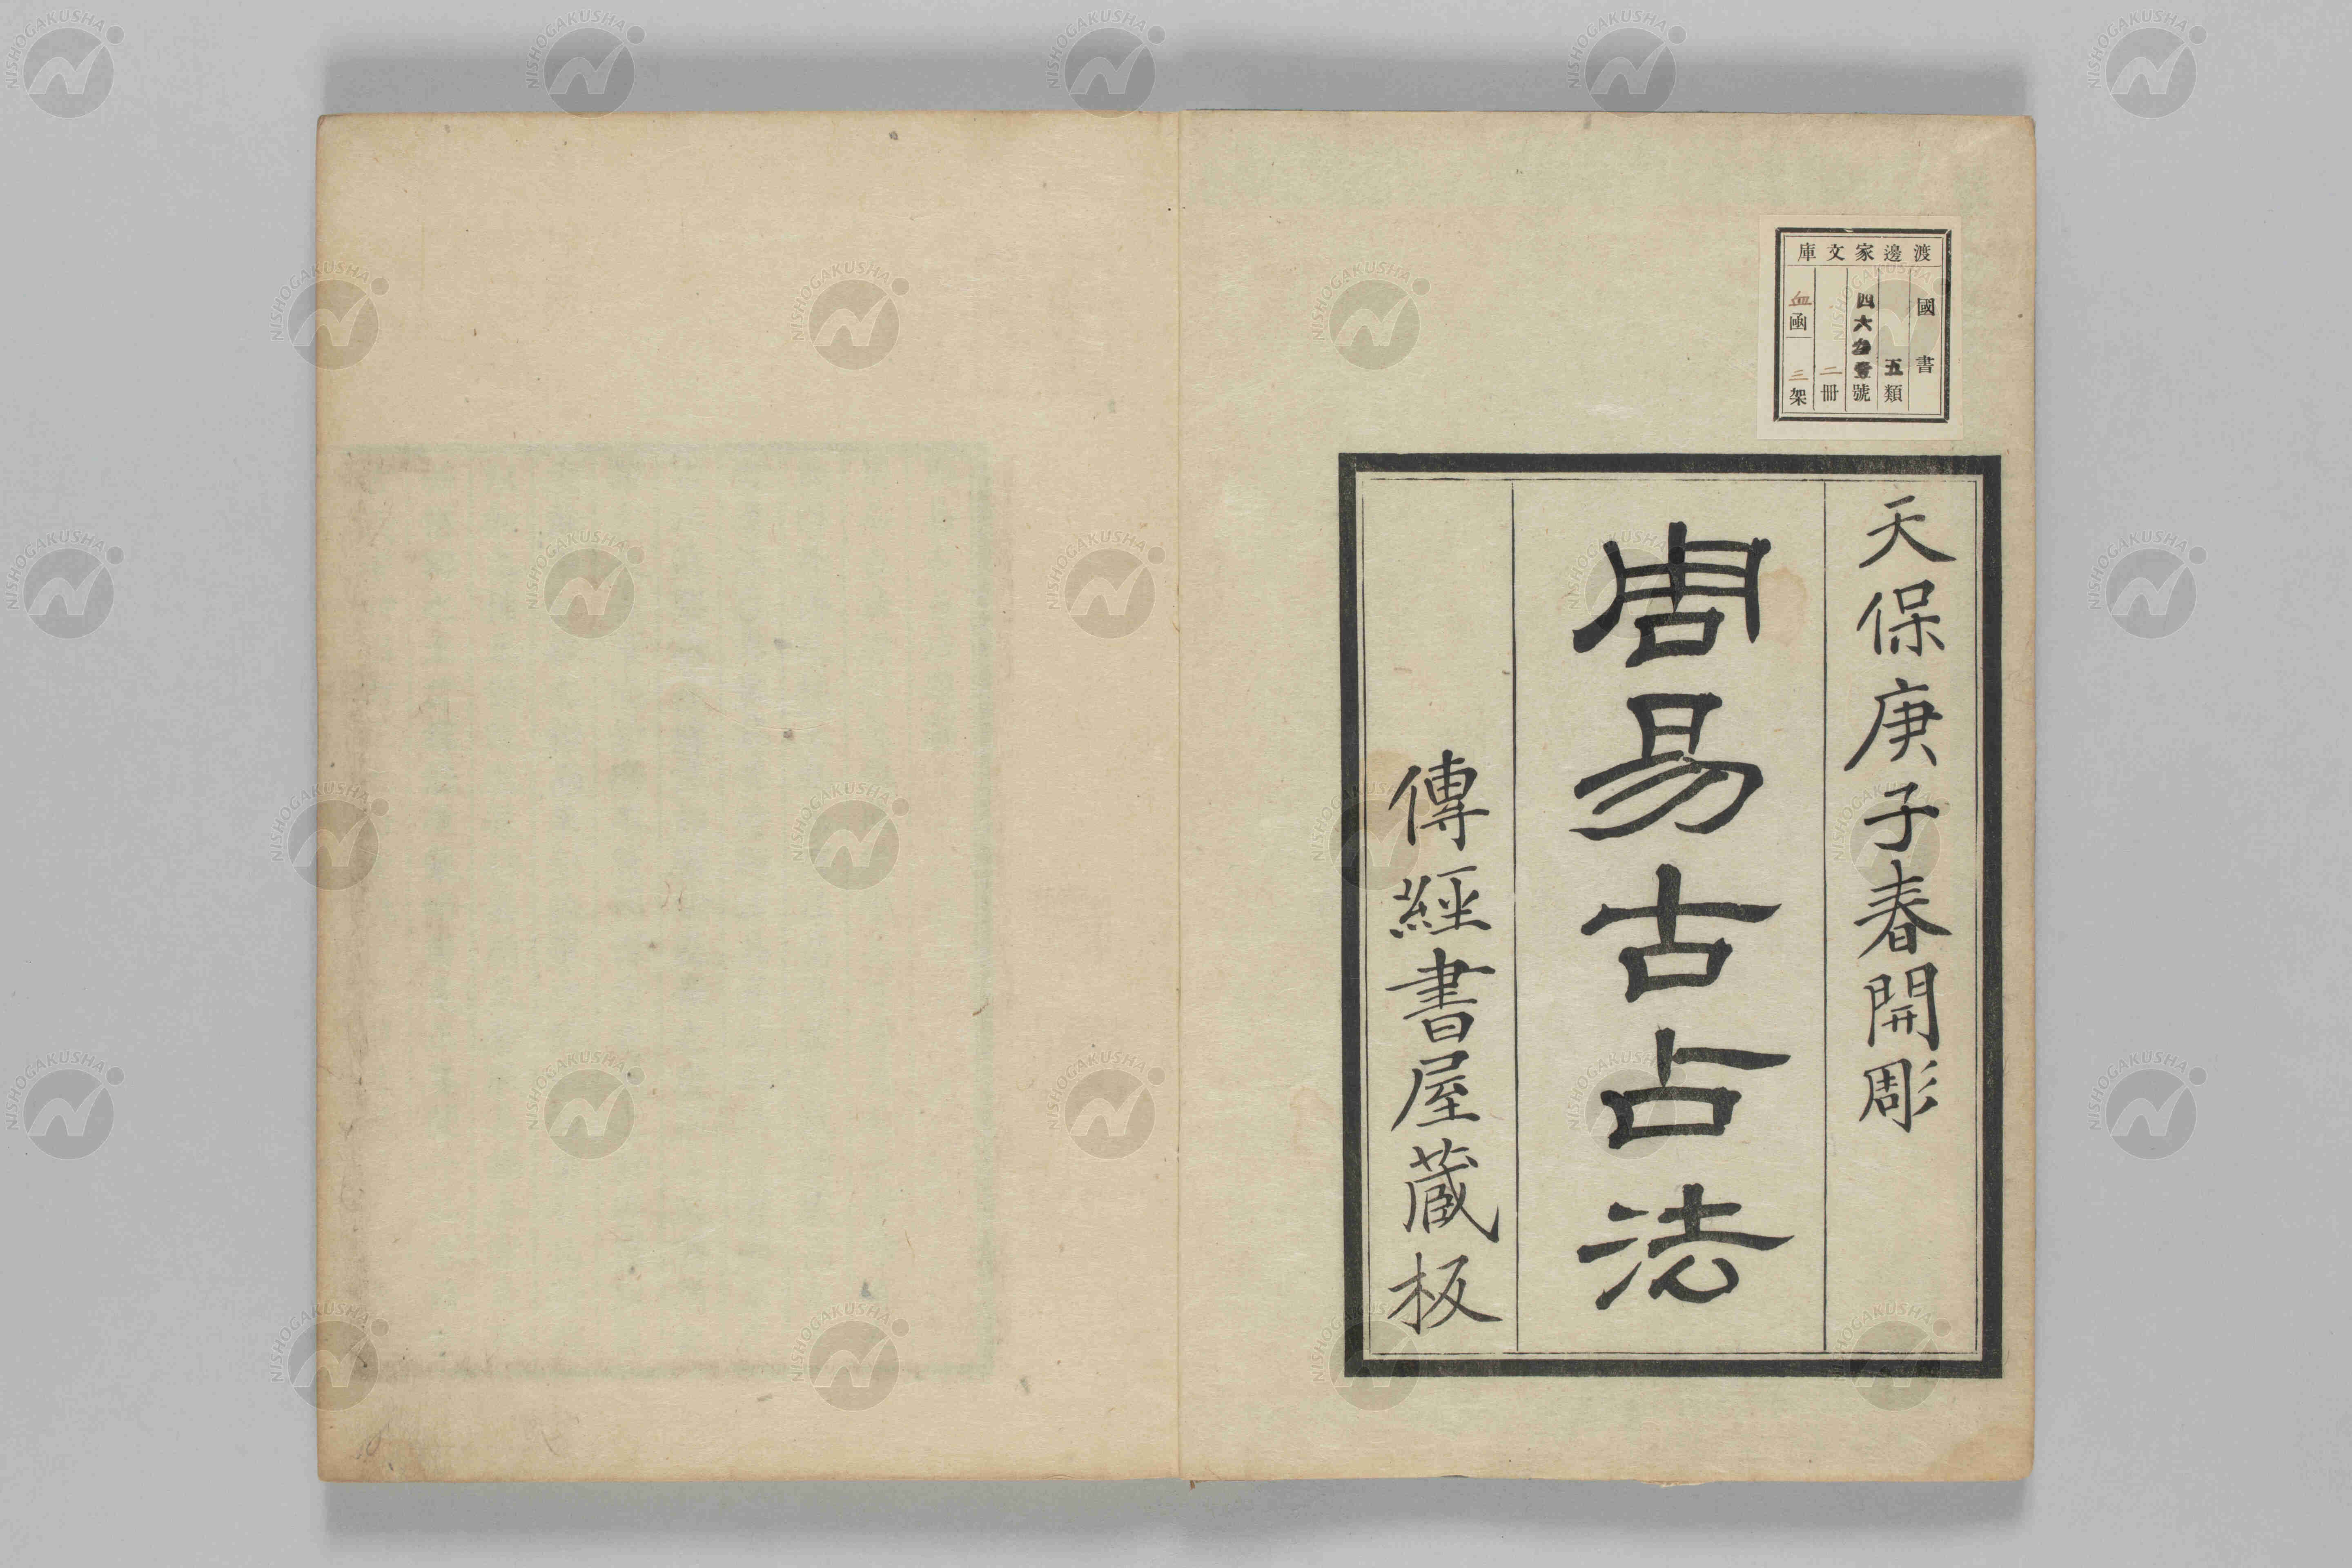 渡邊家文庫
國書
五類
四六
號
二冊
函
三架
天保庚子春開彫
周易古占法
傳經書屋蔵板
NISHOGAKUSHA